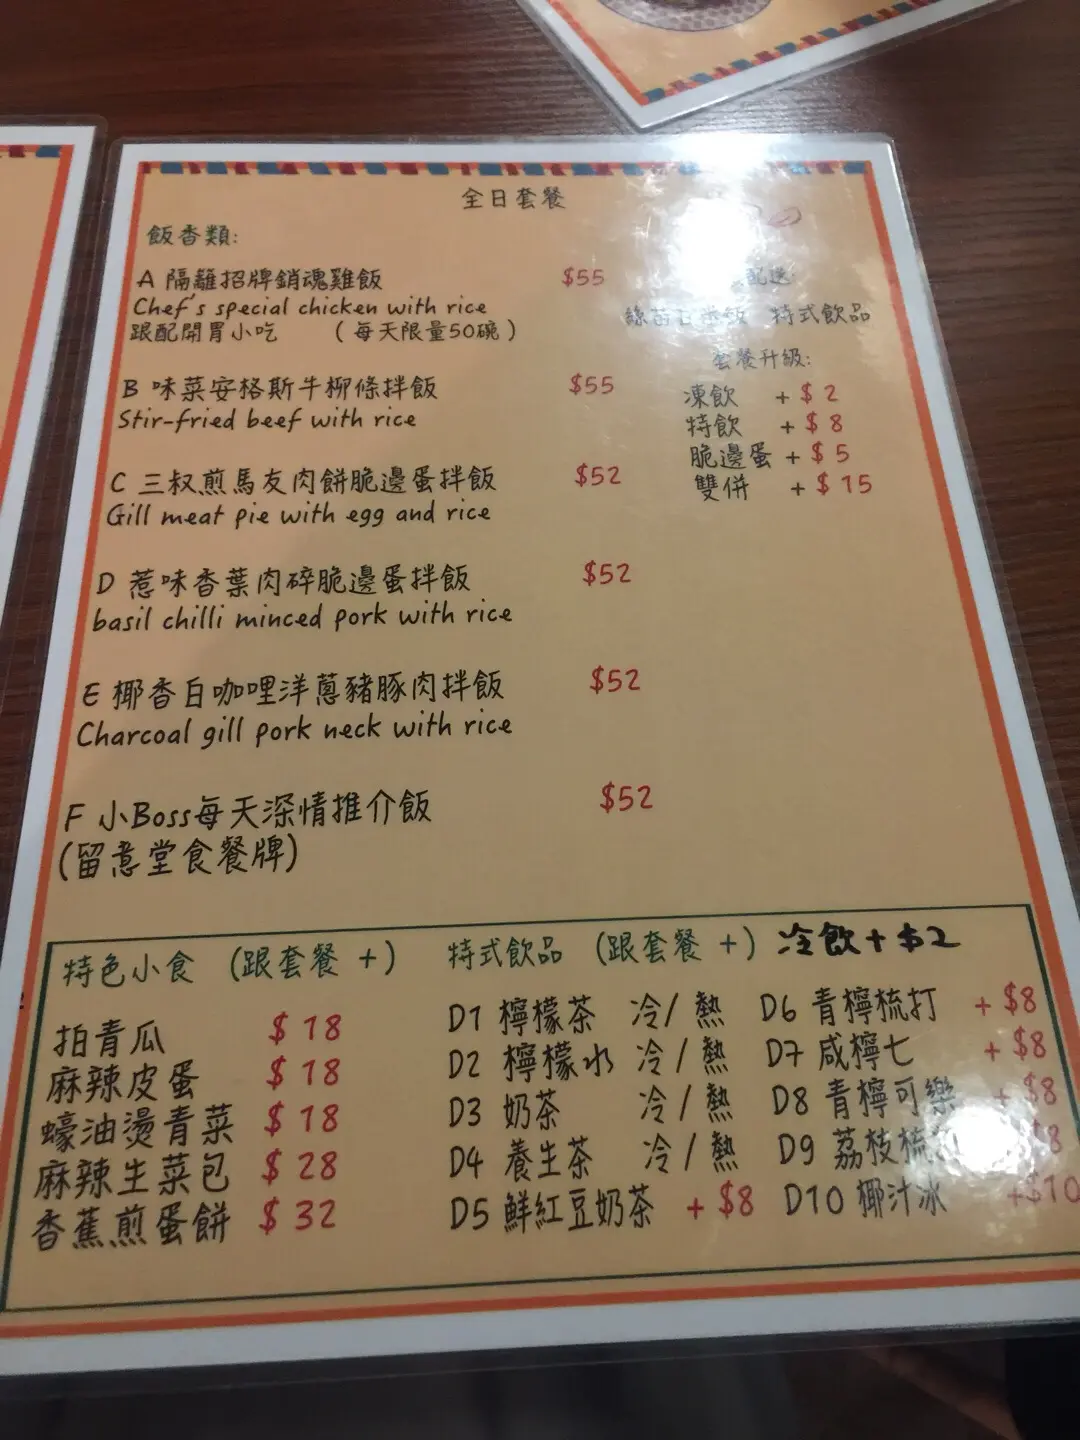 全日套餐
飯香類:
A 隔離招牌銷魂雞飯 $55
Chef's special chicken with rice
跟配開胃小吃 (每天限量50碗)
B 味菜安格斯牛柳條拌飯 $55
Stir-fried beef with rice
C 三叔煎馬友肉餅脆邊蛋拌飯 $52
Gill meat pie with egg and rice
D 惹味香葉肉碎脆邊蛋拌飯 $52
basil chilli minced pork with rice
E 椰香白咖哩洋蔥豬豚肉拌飯 $52
Charcoal gill pork neck with rice
F 小Boss每天深情推介飯 $52
(留意堂食餐牌)
配送:
特式飲品
套餐升級:
凍飲 +$2
特飲 +$8
脆邊蛋 +$5
雙併 +$15
特色小食 (跟套餐 +)
拍青瓜 $18
麻辣皮蛋 $18
蠔油燙青菜 $18
麻辣生菜包 $28
香蕉煎蛋餅 $32
特式飲品 (跟套餐 +) 冷飲+$2
D1 檸檬茶 冷/熱
D2 檸檬水 冷/熱
D3 奶茶 冷/熱
D4 養生茶 冷/熱
D5 鮮紅豆奶茶 +$8
D6 青檸梳打 +$8
D7 咸檸七 +$8
D8 青檸可樂 +$8
D9 荔枝梳 $8
D10 椰汁冰 +$10